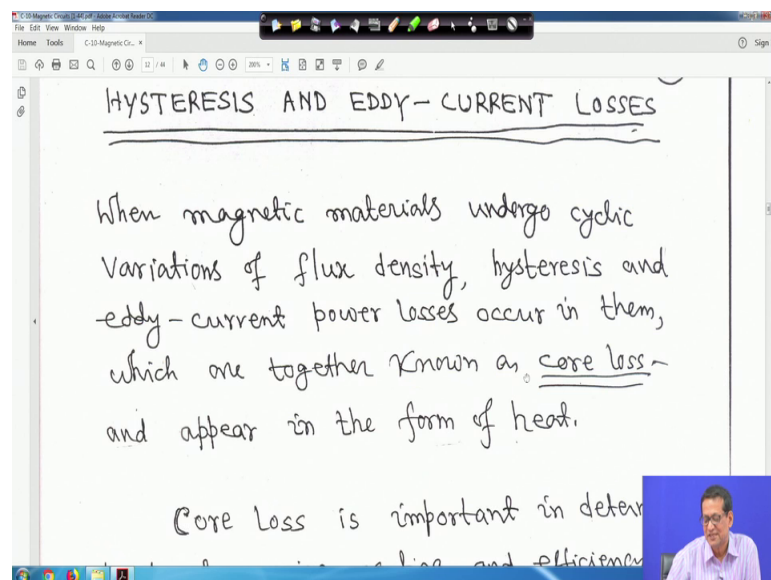 C-10-Magnetic Circuits (1-44).pdf - Adobe Acrobat Reader DC
File Edit View Window Help
Home Tools C-10-Magnetic Cir... ×
Sign
12 / 44
200%
HYSTERESIS AND EDDY-CURRENT LOSSES
When magnetic materials undergo cyclic
variations of flux density, hysteresis and
eddy-current power losses occur in them,
which are together known as core loss-
and appear in the form of heat.
Core Loss is important in deter
and efficiency